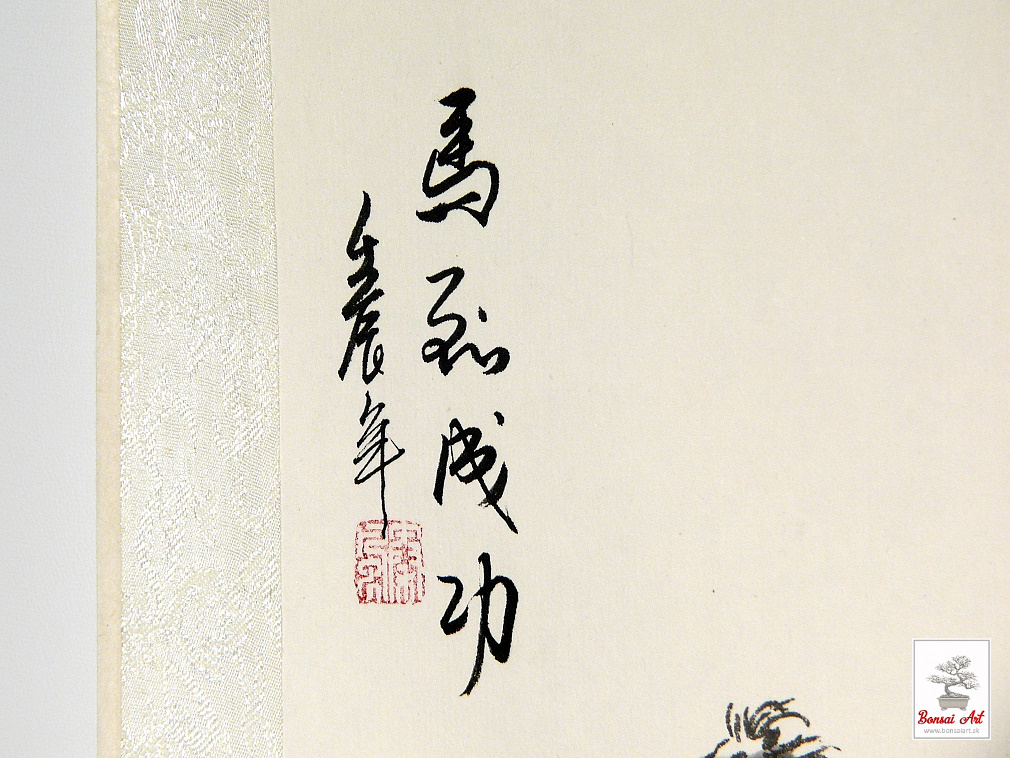 馬到成功
壬辰年
Bonsai Art
www.bonsaiart.sk